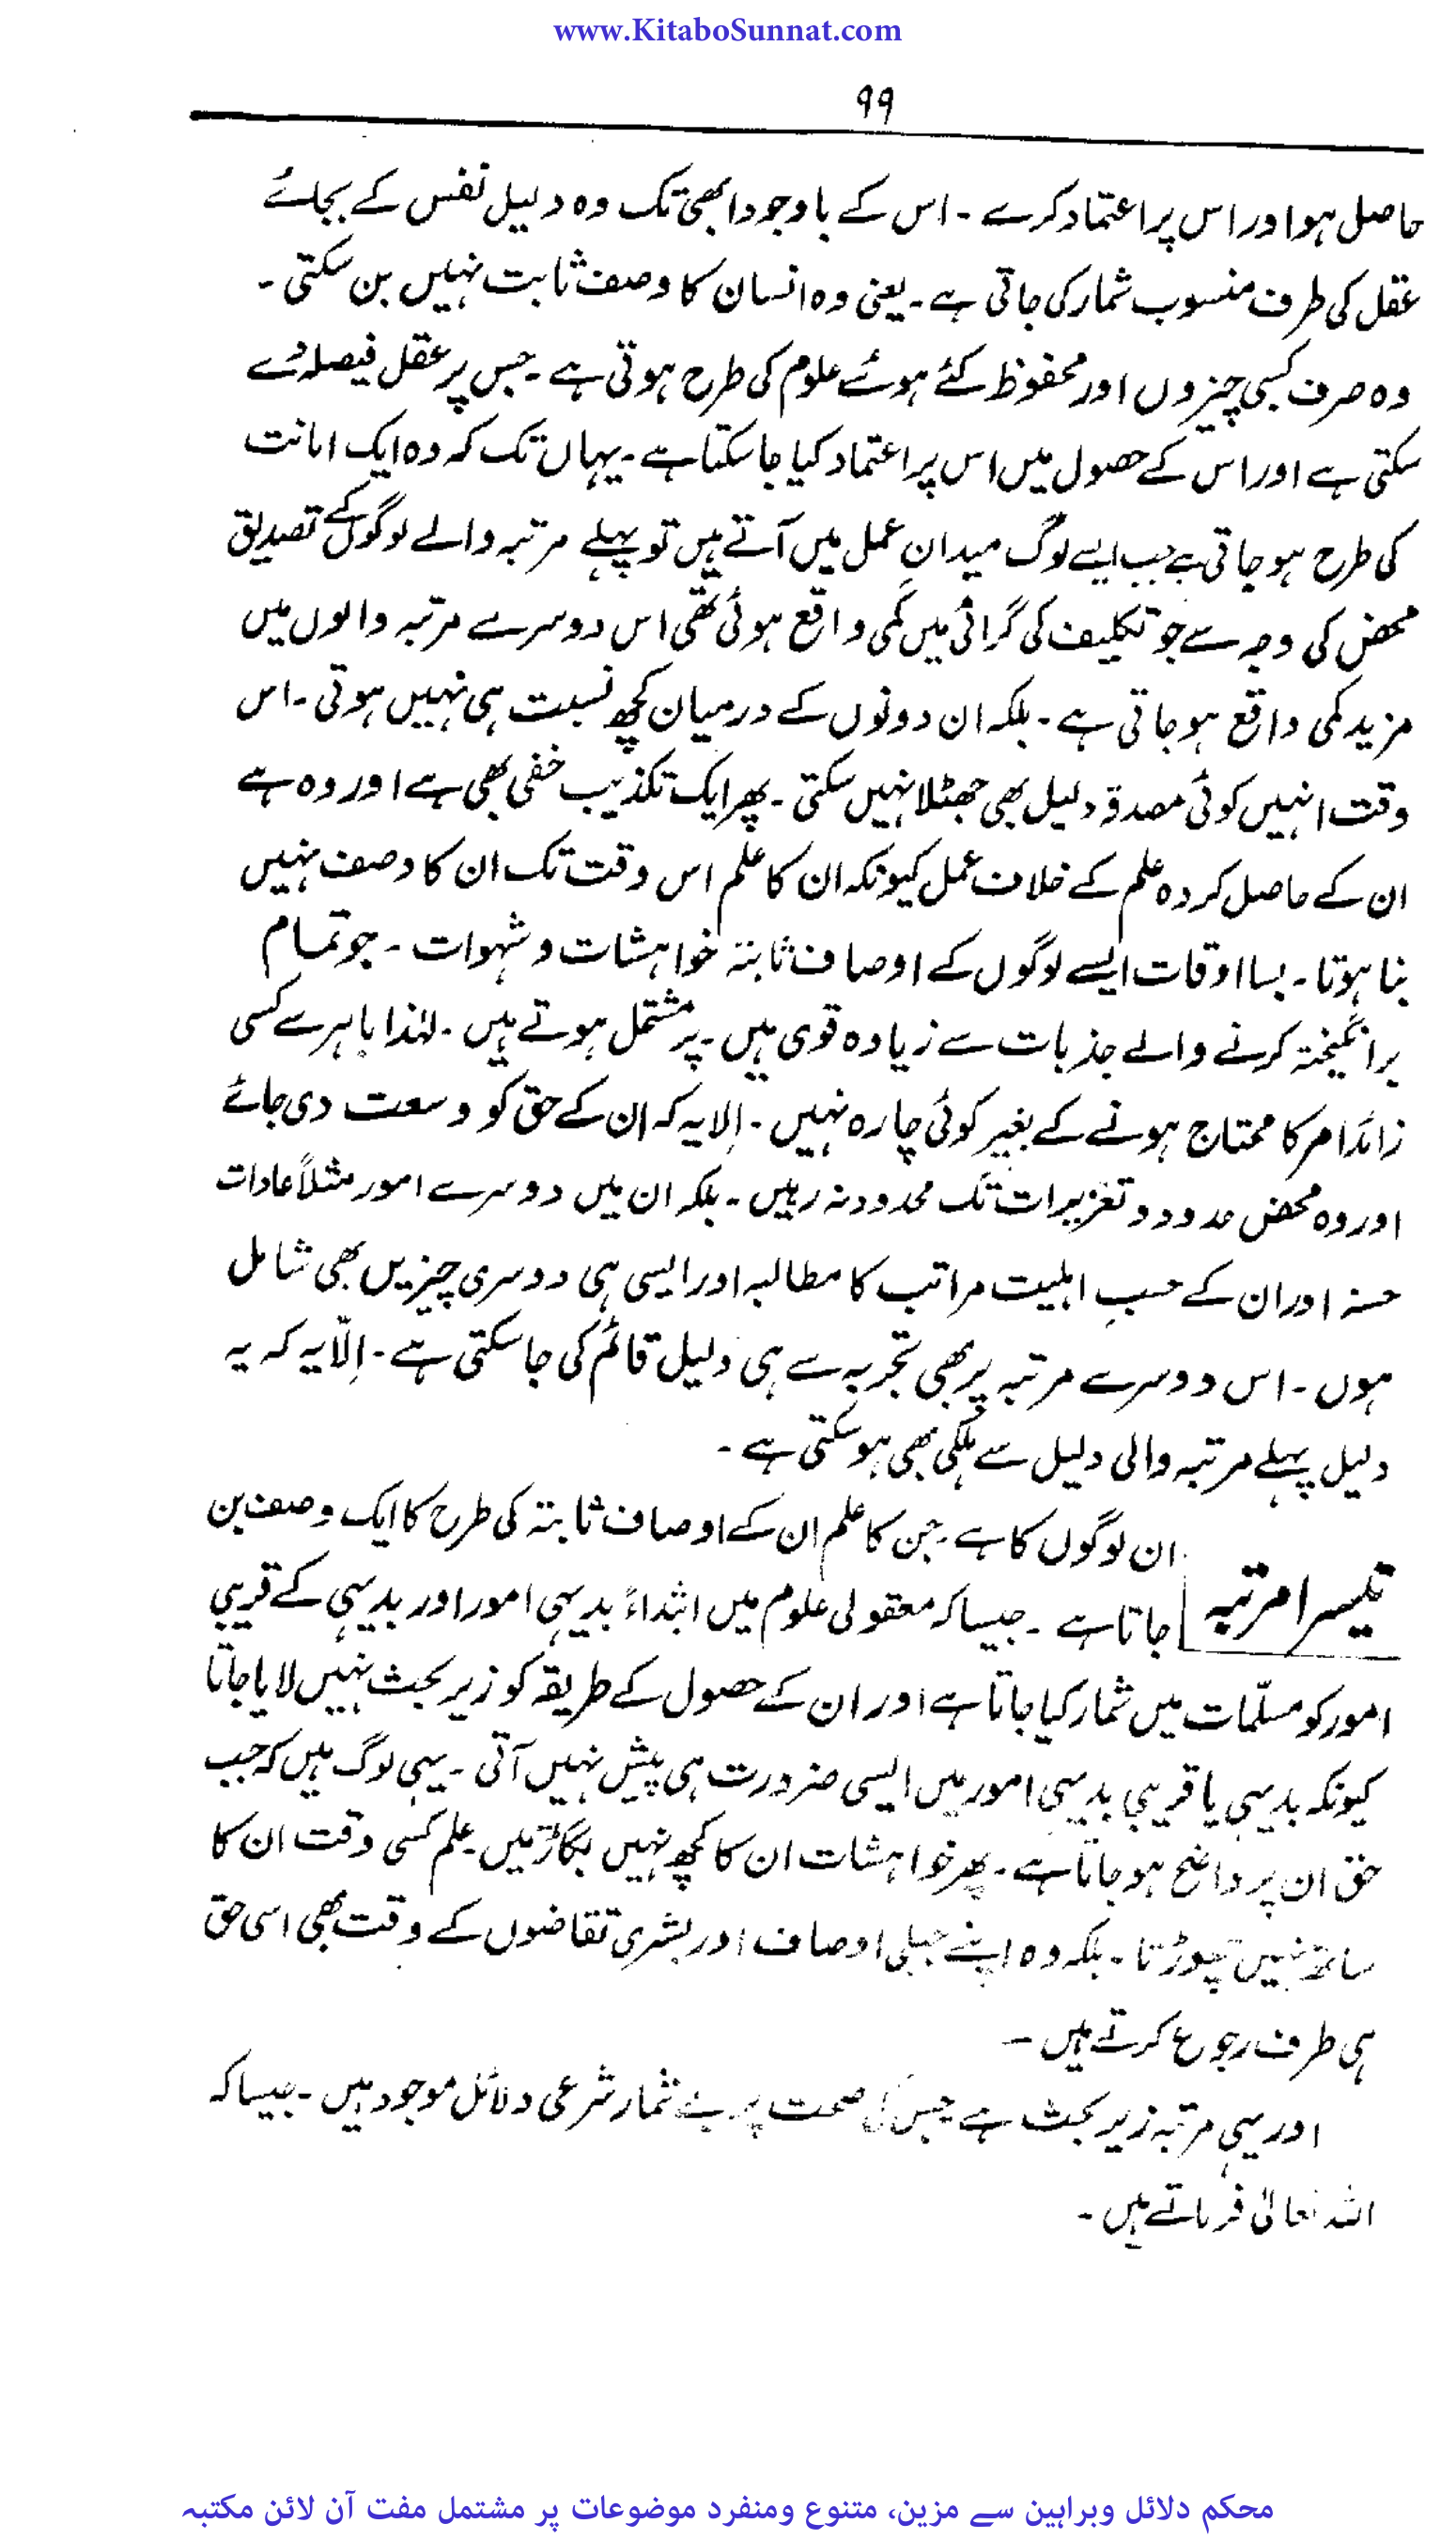 www.KitaboSunnat.com
۹۹
حاصل ہوا اور اس پر اعتماد کرے ۔ اس کے باوجود ابھی تک وہ دلیل نفس کے بجائے
عقل کی طرف منسوب شمار کی جاتی ہے ۔ یعنی وہ انسان کا وصف ثابت نہیں بن سکتی ۔
وہ صرف کسبی چیزوں اور محفوظ کئے ہوئے علوم کی طرح ہوتی ہے ۔ جس پر عقل فیصلہ دے
سکتی ہے اور اس کے حصول میں اس پر اعتماد کیا جا سکتا ہے ۔ یہاں تک کہ وہ ایک امانت
کی طرح ہو جاتی ہے جب ایسے لوگ میدانِ عمل میں آتے ہیں تو پہلے مرتبہ والے لوگوں کے تصدیق
محض کی وجہ سے جو تکلیف کی گرانی میں کمی واقع ہوئی تھی اس دوسرے مرتبہ والوں میں
مزید کمی واقع ہو جاتی ہے ۔ بلکہ ان دونوں کے درمیان کچھ نسبت ہی نہیں ہوتی ۔ اس
وقت انہیں کوئی مصدقہ دلیل بھی جھٹلا نہیں سکتی ۔ پھر ایک تکذیب خفی بھی ہے اور وہ ہے
ان کے حاصل کردہ علم کے خلاف عمل کیونکہ ان کا علم اس وقت تک ان کا وصف نہیں
بنا ہوتا ۔ بسا اوقات ایسے لوگوں کے اوصاف ثابتہ خواہشات و شہوات ۔ جو تمام
برانگیختہ کرنے والے جذبات سے زیادہ قوی ہیں ۔ پر مشتمل ہوتے ہیں ۔ لہٰذا باہر سے کسی
زائد امر کا محتاج ہونے کے بغیر کوئی چارہ نہیں ۔ اِلا یہ کہ ان کے حق کو وسعت دی جائے
اور وہ محض حدود و تعزیرات تک محدود نہ رہیں ۔ بلکہ ان میں دوسرے امور مثلاً عادات
حسنہ اور ان کے حسبِ اہلیت مراتب کا مطالبہ اور ایسی ہی دوسری چیزیں بھی شامل
ہوں ۔ اس دوسرے مرتبہ پر بھی تجربہ سے ہی دلیل قائم کی جا سکتی ہے ۔ اِلّا یہ کہ یہ
دلیل پہلے مرتبہ والی دلیل سے ہلکی بھی ہو سکتی ہے ۔
تیسرا مرتبہ
ان لوگوں کا ہے ۔ جن کا علم ان کے اوصاف ثابتہ کی طرح کا ایک وصف بن
جاتا ہے ۔ جیسا کہ معقولی علوم میں ابتداءً بدیہی امور اور بدیہی کے قریبی
امور کو مسلّمات میں شمار کیا جاتا ہے اور ان کے حصول کے طریقہ کو زیر بحث نہیں لایا جاتا
کیونکہ بدیہی یا قریبی بدیہی امور میں ایسی ضرورت ہی پیش نہیں آتی ۔ یہی لوگ ہیں کہ جب
حق ان پر واضح ہو جاتا ہے ۔ پھر خواہشات ان کا کچھ نہیں بگاڑتیں علم کسی وقت ان کا
ساتھ نہیں چھوڑتا ۔ بلکہ وہ اپنے جبلی اوصاف اور بشری تقاضوں کے وقت بھی اسی حق
ہی طرف رجوع کرتے ہیں ۔
اور یہی مرتبہ زیر بحث ہے جس کی صحت پر بے شمار شرعی دلائل موجود ہیں ۔ جیسا کہ
اللہ تعالیٰ فرماتے ہیں ۔
محکم دلائل وبراہین سے مزین، متنوع ومنفرد موضوعات پر مشتمل مفت آن لائن مکتبہ